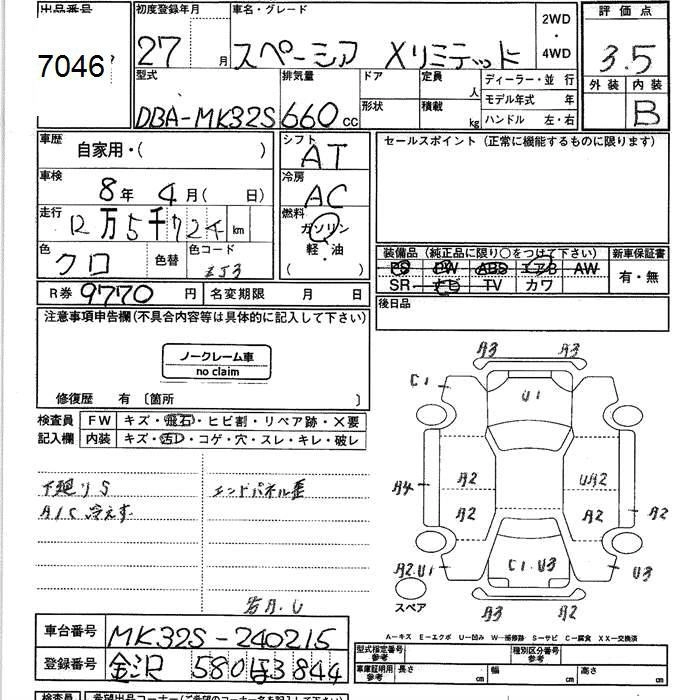 出品番号
7046
初度登録年月
27 月
車名・グレード
スペーシア Xリミテッド
2WD
・
4WD
評価点
3.5
外装 内装
B
型式
DBA-MK32S
排気量
660 cc
ドア
形状
定員
人
積載
kg
ディーラー・並 行
モデル年式 年
ハンドル 左・右
車歴
自家用・( )
車検
8年 4月( 日)
走行
12万5千724 km
色
クロ
色替
色コード
ZJ3
シフト
AT
冷房
AC
燃料
ガソリン
軽・油
( )
セールスポイント(正常に機能するものに限ります)
装備品(純正品に限り○をつけて下さい)
新車保証書
PS PW ABS エアB AW
SR ナビ TV カワ
有・無
後日品
R券 9770 円
名変期限 月 日
注意事項申告欄(不具合内容等は具体的に記入して下さい)
ノークレーム車
no claim
修復歴 有 〔箇所 〕
検査員
記入欄
FW キズ・飛石・ヒビ割・リペア跡・×要
内装 キズ・汚レ・コゲ・穴・スレ・キレ・破レ
下廻りS
A/C 冷えず
エンドパネル歪
A3 A3
C1
U1
A4
A2 UA2
A2 A2
A2
A2.U1
C1.U3
U3
スペア
A3 A2
車台番号 MK32S-240215
登録番号 金沢 580 ほ3844
A-キズ E-エクボ U-凹み W-補修跡 S-サビ C-腐食 XX-交換済
型式指定番号
参考
種別区分番号
参考
車庫証明用
参考
長さ cm
幅 cm
高さ cm
検査員
希望出品コーナー(ご希望のコーナー名を記入して下さい)